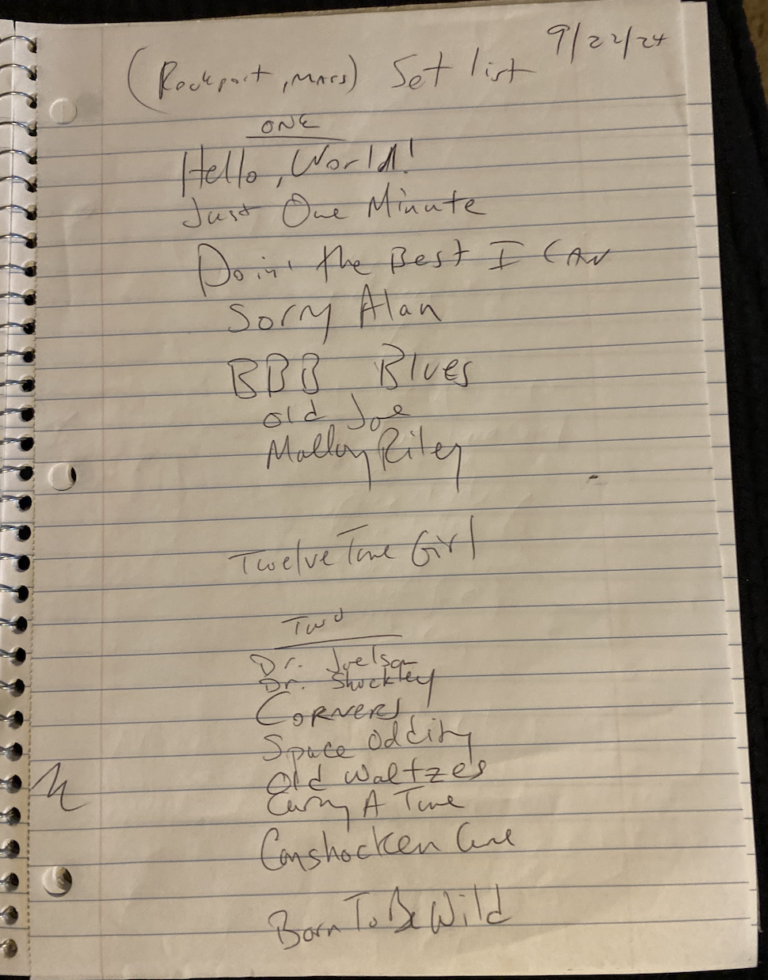 (Rockport, Mass) Set list 9/22/24
ONE
Hello, World!
Just One Minute
Doin' the Best I CAN
Sorry Alan
BBB Blues
Old Joe
Riley
Twelve Tone Girl
TWO
Dr. Joelson
Dr. Shockley
CORNERS
Space Oddity
Old Waltzes
Carry A Tune
Born To Be Wild